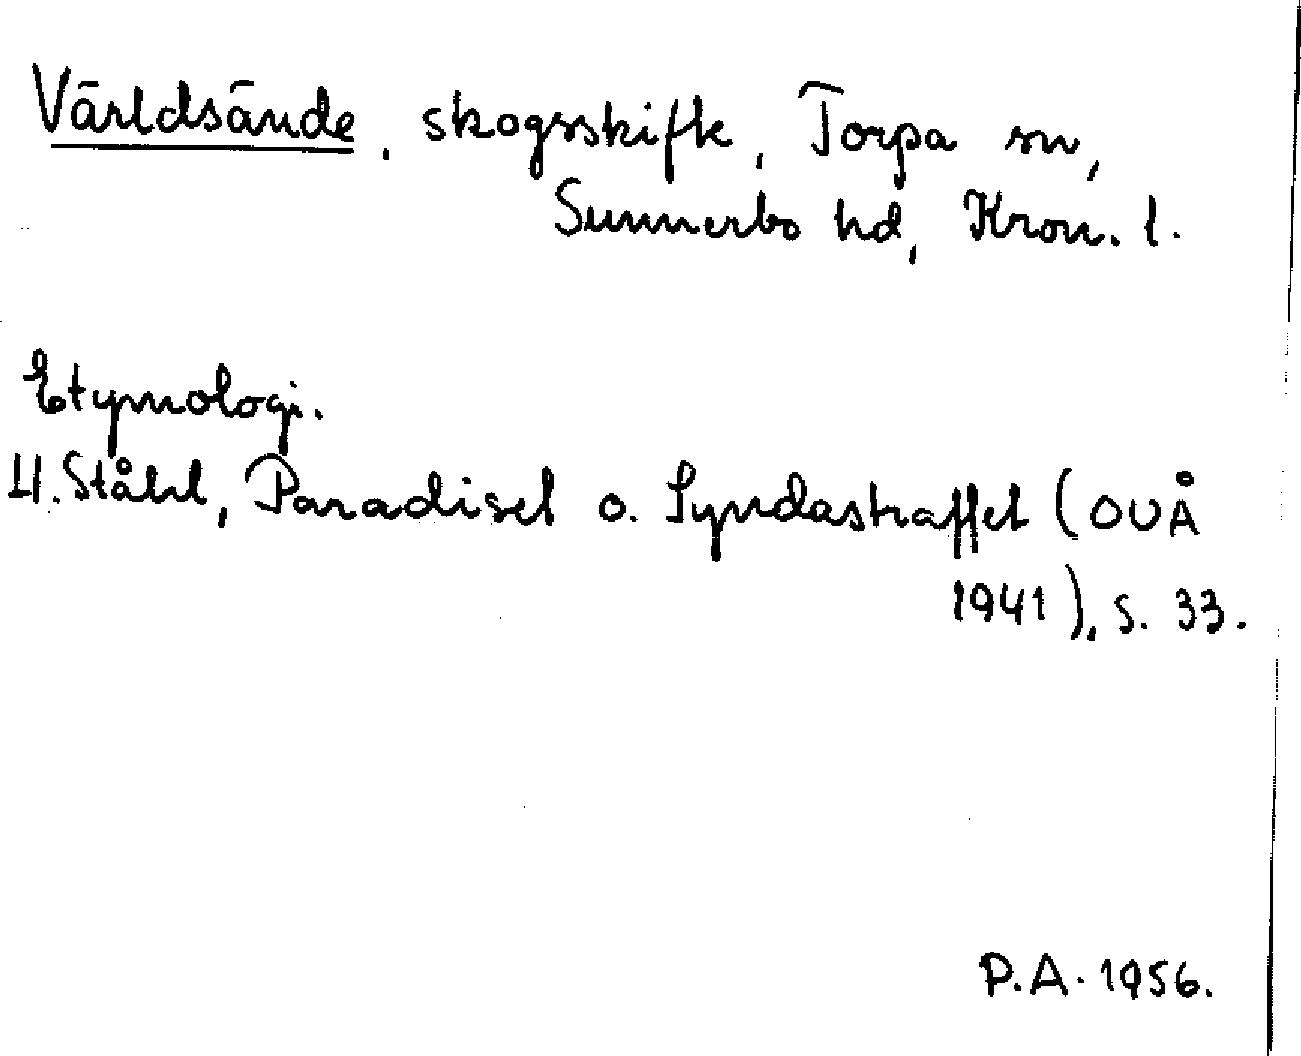 Världsände, skogsskifte, Torpa sn,
Sunnerbo hd, Kron. l.
Etymologi.
H. Ståhl, Paradiset o. Syndastraffet (OUÅ
1941), s. 33.
P.A. 1956.